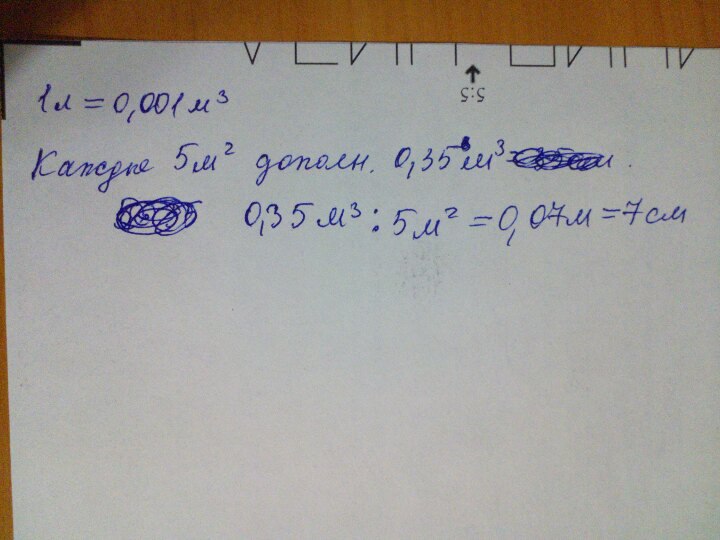 5:5
1л = 0,001м³
Каждые 5м² дополн. 0,35 м³
0,35м³ : 5м² = 0,07м = 7см